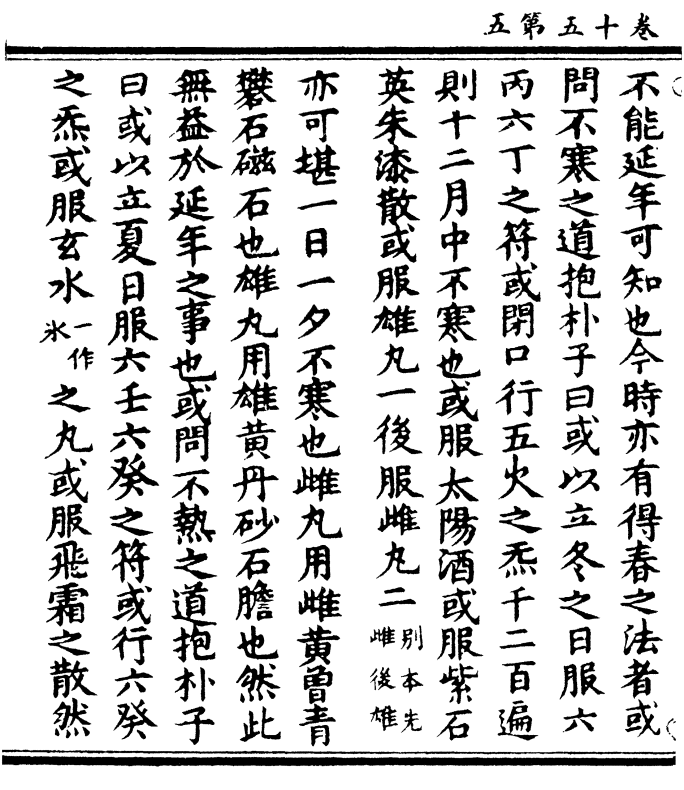 卷十五第五
不能延年可知也今時亦有得春之法者或
問不寒之道抱朴子曰或以立冬之日服六
丙六丁之符或閉口行五火之炁千二百遍
則十二月中不寒也或服太陽酒或服紫石
英朱漆散或服雄丸一後服雌丸二別本先雌後雄
亦可堪一日一夕不寒也雌丸用雌黄曾青
礬石磁石也雄丸用雄黄丹砂石膽也然此
無益於延年之事也或問不熱之道抱朴子
曰或以立夏日服六壬六癸之符或行六癸
之炁或服玄水一作氷之丸或服飛霜之散然